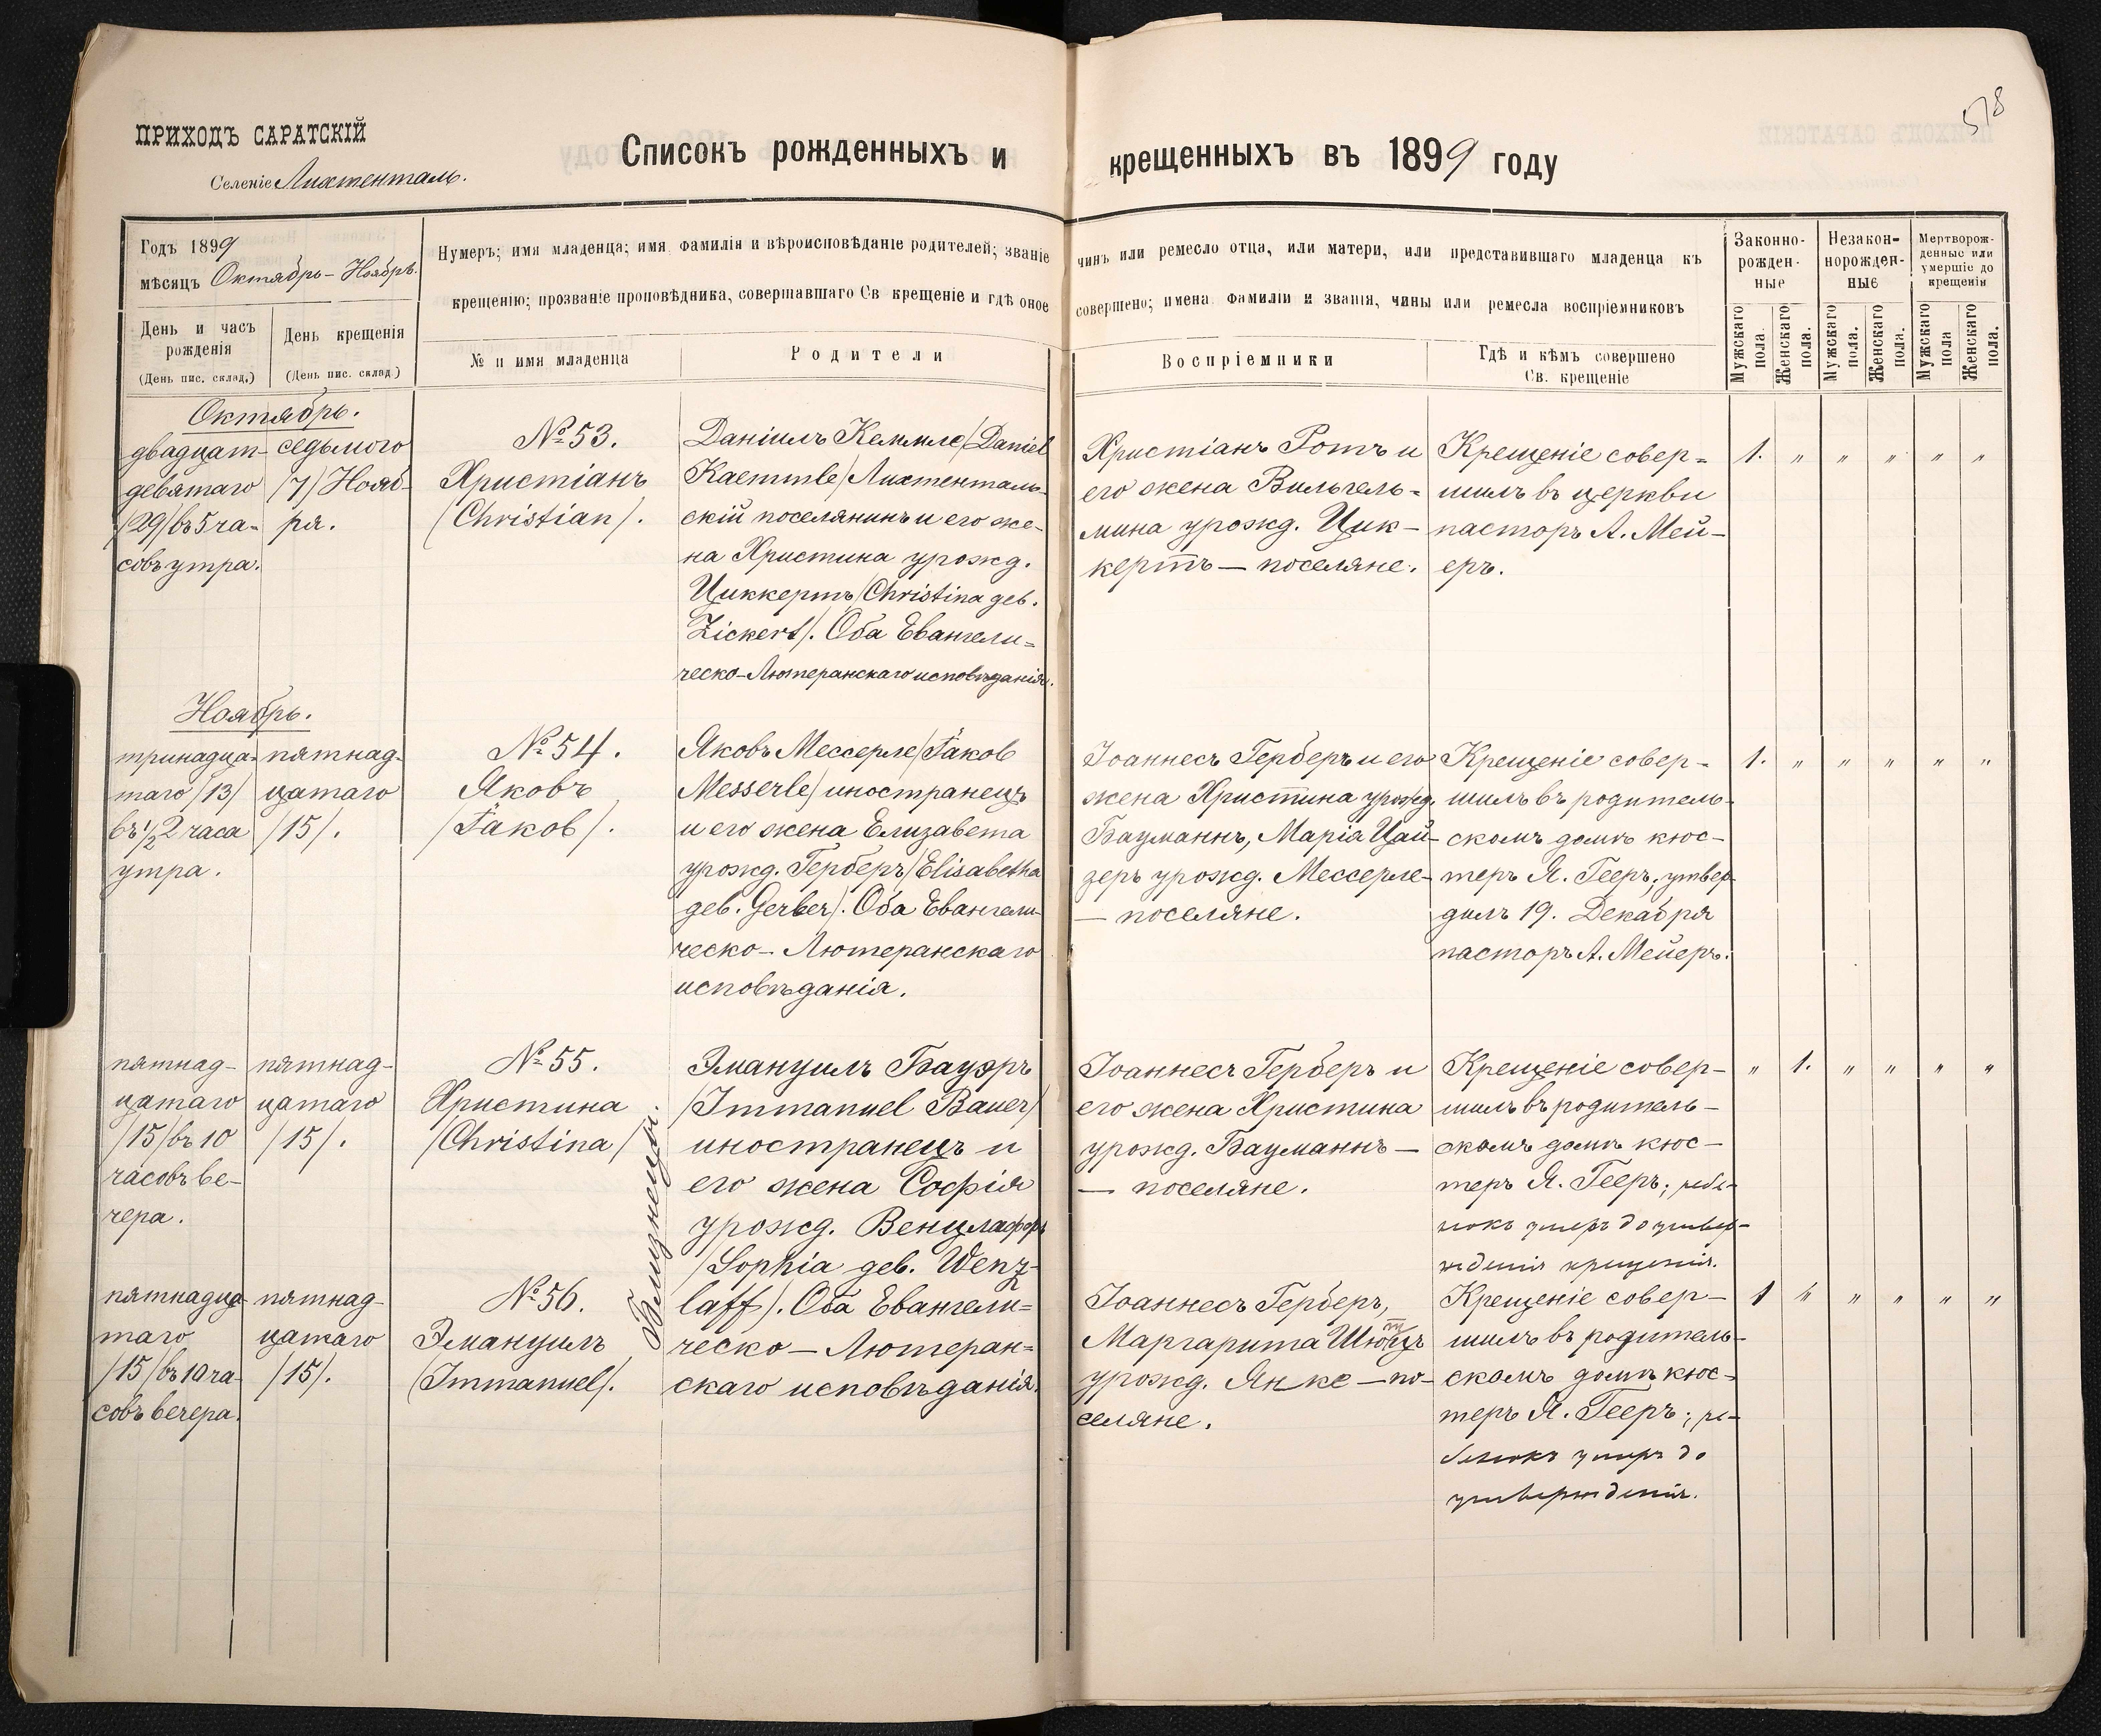 578
ПРИХОДЪ САРАТСКІЙ
Селеніе Лихтенталь.
Списокъ рожденныхъ и крещенныхъ въ 1899 году
Годъ 1899
мѣсяцъ Октябрь - Ноябрь.
День и часъ
рожденія
(День пис. склад.)
День крещенія
(День пис. склад.)
Нумеръ; имя младенца; имя фамилія и вѣроисповѣданіе родителей; званіе
чинъ или ремесло отца, или матери, или представившаго младенца къ
крещенію; прозваніе проповѣдника, совершавшаго Св крещеніе и гдѣ оное
совершено; имена фамиліи и званія, чины или ремесла воспріемниковъ
№ и имя младенца
Родители
Воспріемники
Гдѣ и кѣмъ совершено
Св. крещеніе
Законно-
рожден-
ные
Незакон-
норожден-
ные
Мертворож-
денные или
умершіе до
крещенія
Мужскаго
пола
Женскаго
пола.
Мужскаго
пола.
Женскаго
пола.
Мужскаго
пола
Женскаго
пола.
Октябрь.
двадцат-
девятаго
/29/ въ 5 ча-
совъ утра.
седьмого
/7/ Нояб-
ря.
№ 53.
Христіанъ
/Christian/.
Даніилъ Кеммле /Daniel
Kaemmle/ Лихтенталь-
скій поселянинъ и его же-
на Христина урожд.
Циккертъ /Christina geb.
Zickert/. Оба Евангели-
ческо-Лютеранскаго исповѣданія.
Христіанъ Ротъ и
его жена Вильгель-
мина урожд. Цик-
кертъ — поселяне.
Крещеніе совер-
шилъ въ церкви
пасторъ А. Мей-
еръ.
1. " " " " "
Ноябрь.
тринадца-
таго /13/
въ 1/2 2 часа
утра.
пятнад-
цатаго
/15/.
№ 54.
Яковъ
/Jakob/.
Яковъ Мессерле /Jakob
Messerle/ иностранецъ
и его жена Елизавета
урожд. Герберъ /Elisabetha
geb. Gerber/. Оба Евангели-
ческо-Лютеранскаго
исповѣданія.
Іоаннесъ Герберъ и его
жена Христина урожд.
Бауманнъ, Марія Цай-
зеръ урожд. Мессерле-
— поселяне.
Крещеніе совер-
шилъ въ родитель-
скомъ домѣ кюс-
теръ Я. Гееръ; утвер-
дилъ 19. Декабря
пасторъ А. Мейеръ.
1. " " " " "
пятнад-
цатаго
/15/ въ 10
часовъ ве-
чера.
пятнад-
цатаго
/15/.
№ 55.
Христина
/Christina/
Оба близнецы.
Эмануилъ Бауэръ
/Immanuel Bauer/
иностранецъ и
его жена Софія
урожд. Венцлаффъ
/Sophia geb. Wenz-
laff/. Оба Евангели-
ческо-Лютеран-
скаго исповѣданія.
Іоаннесъ Герберъ и
его жена Христина
урожд. Бауманнъ —
— поселяне.
Крещеніе совер-
шилъ въ родитель-
скомъ домѣ кюс-
теръ Я. Гееръ; ребе-
нокъ умеръ до утвер-
жденія крещенія.
" 1. " " " "
пятнадца-
таго
/15/ въ 10 ча-
совъ вечера.
пятнад-
цатаго
/15/.
№ 56.
Эмануилъ
/Immanuel/.
Іоаннесъ Герберъ,
Маргарита
урожд. Янке — по-
селяне.
Крещеніе совер-
шилъ въ родитель-
скомъ домѣ кюс-
теръ Я. Гееръ; ре-
бенокъ умеръ до
утвержденія.
1 " " " " "